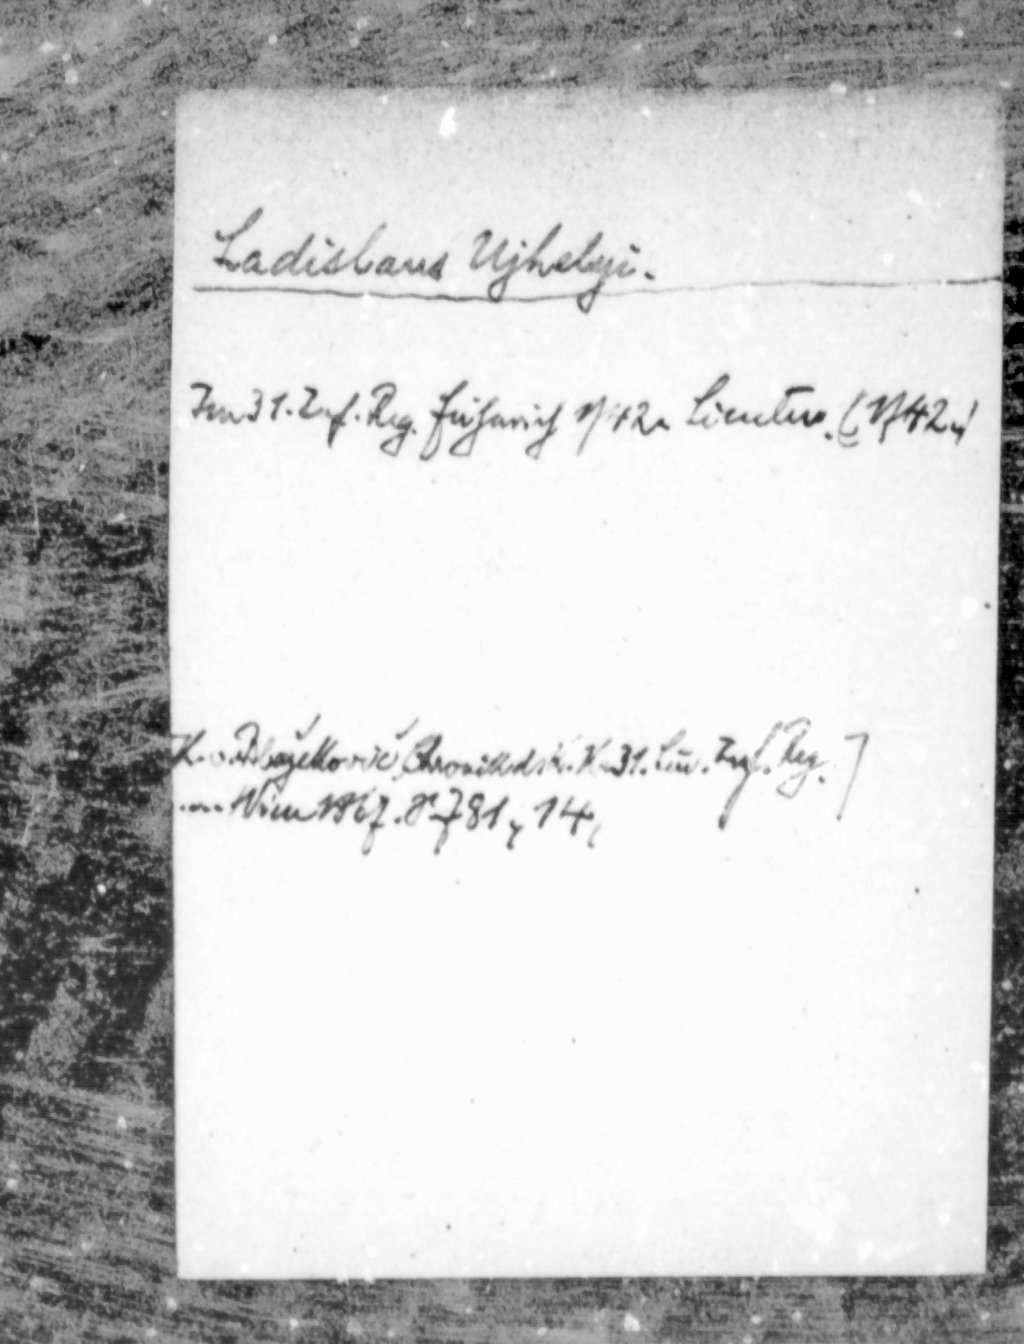 Ladislaus Ujhelyi.
Im 31. Inf. Reg. Fähnrich 1742 Lieuten. (1742)
K. v. Blažeković, Chronik d. k. k. 31. Lin. Inf. Reg.
Wien 1867. 8° 781, 14,